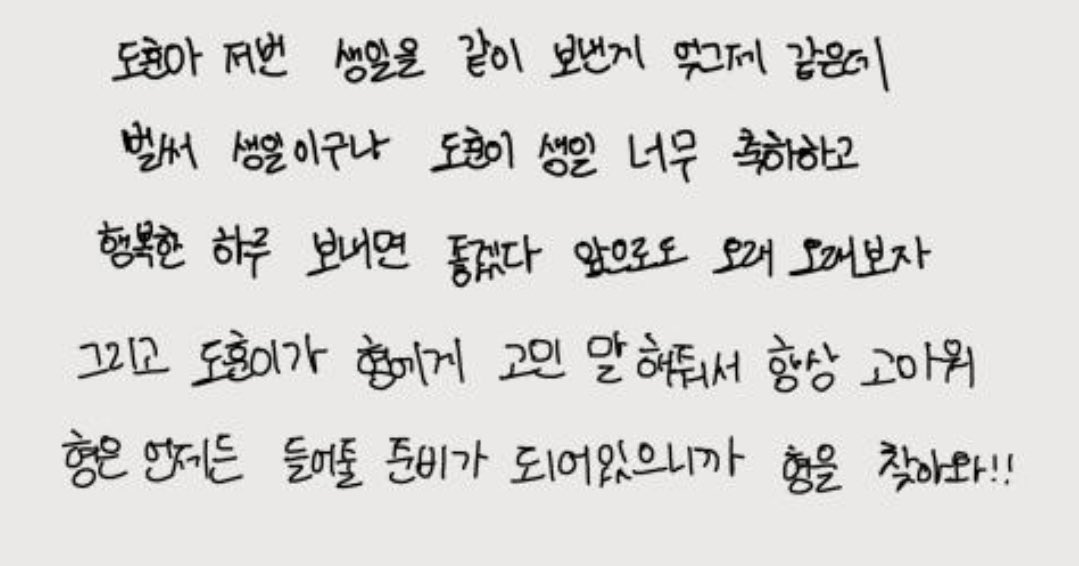 도훈아 저번 생일을 같이 보낸게 엊그제 같은데
벌써 생일이구나 도훈이 생일 너무 축하하고
행복한 하루 보내면 좋겠다 앞으로도 오래 오래보자
그리고 도훈이가 형에게 고민 말해줘서 항상 고마워
형은 언제든 들어줄 준비가 되어있으니까 형을 찾아와!!